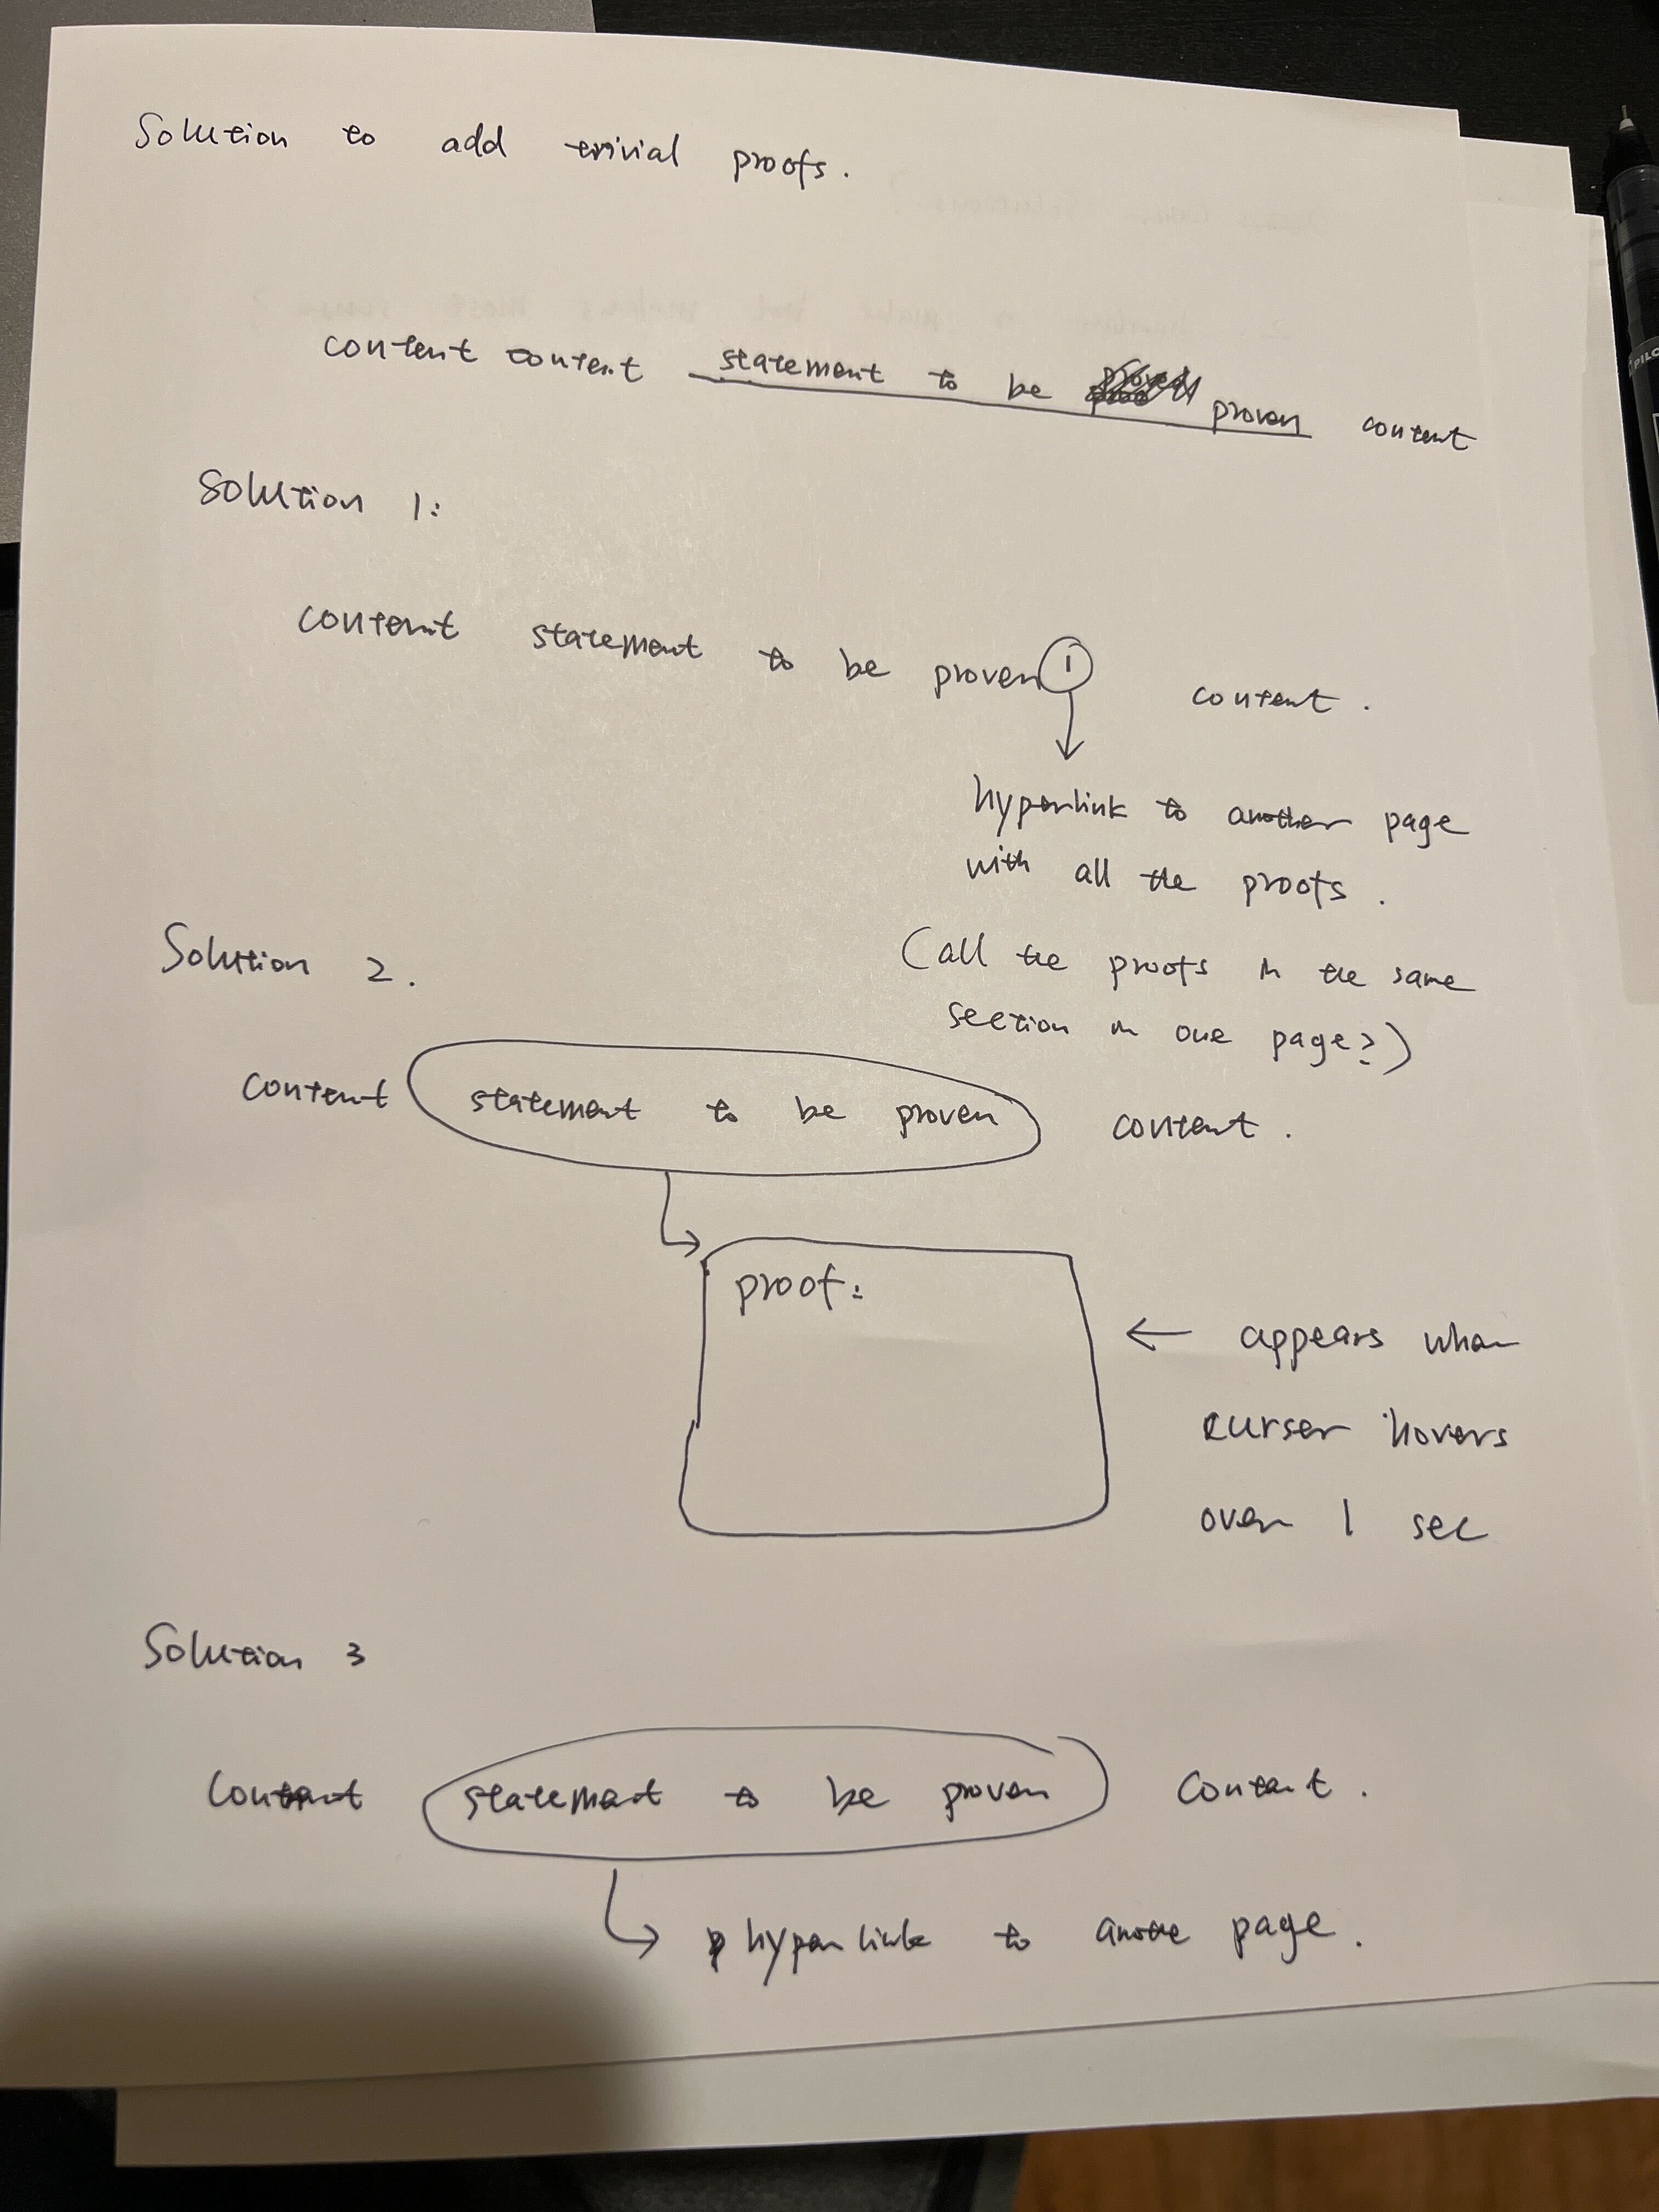 Solution to add trivial proofs.
content content statement to be proven content
Solution 1:
content statement to be proven 1 content.
hyperlink to another page
with all the proofs.
(all the proofs in the same
section in one page?)
Solution 2.
content statement to be proven content.
proof:
← appears when
curser hovers
over 1 sec
Solution 3
Content statement to be proven content.
hyperlink to another page.
PILO